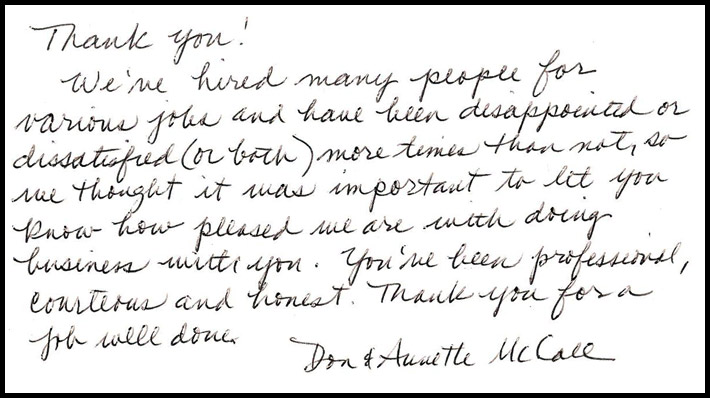 Thank you!
We've hired many people for
various jobs and have been disappointed or
dissatisfied (or both) more times than not, so
we thought it was important to let you
know how pleased we are with doing
business with you. You've been professional,
courteous and honest. Thank you for a
job well done.
Don & Annette McCall